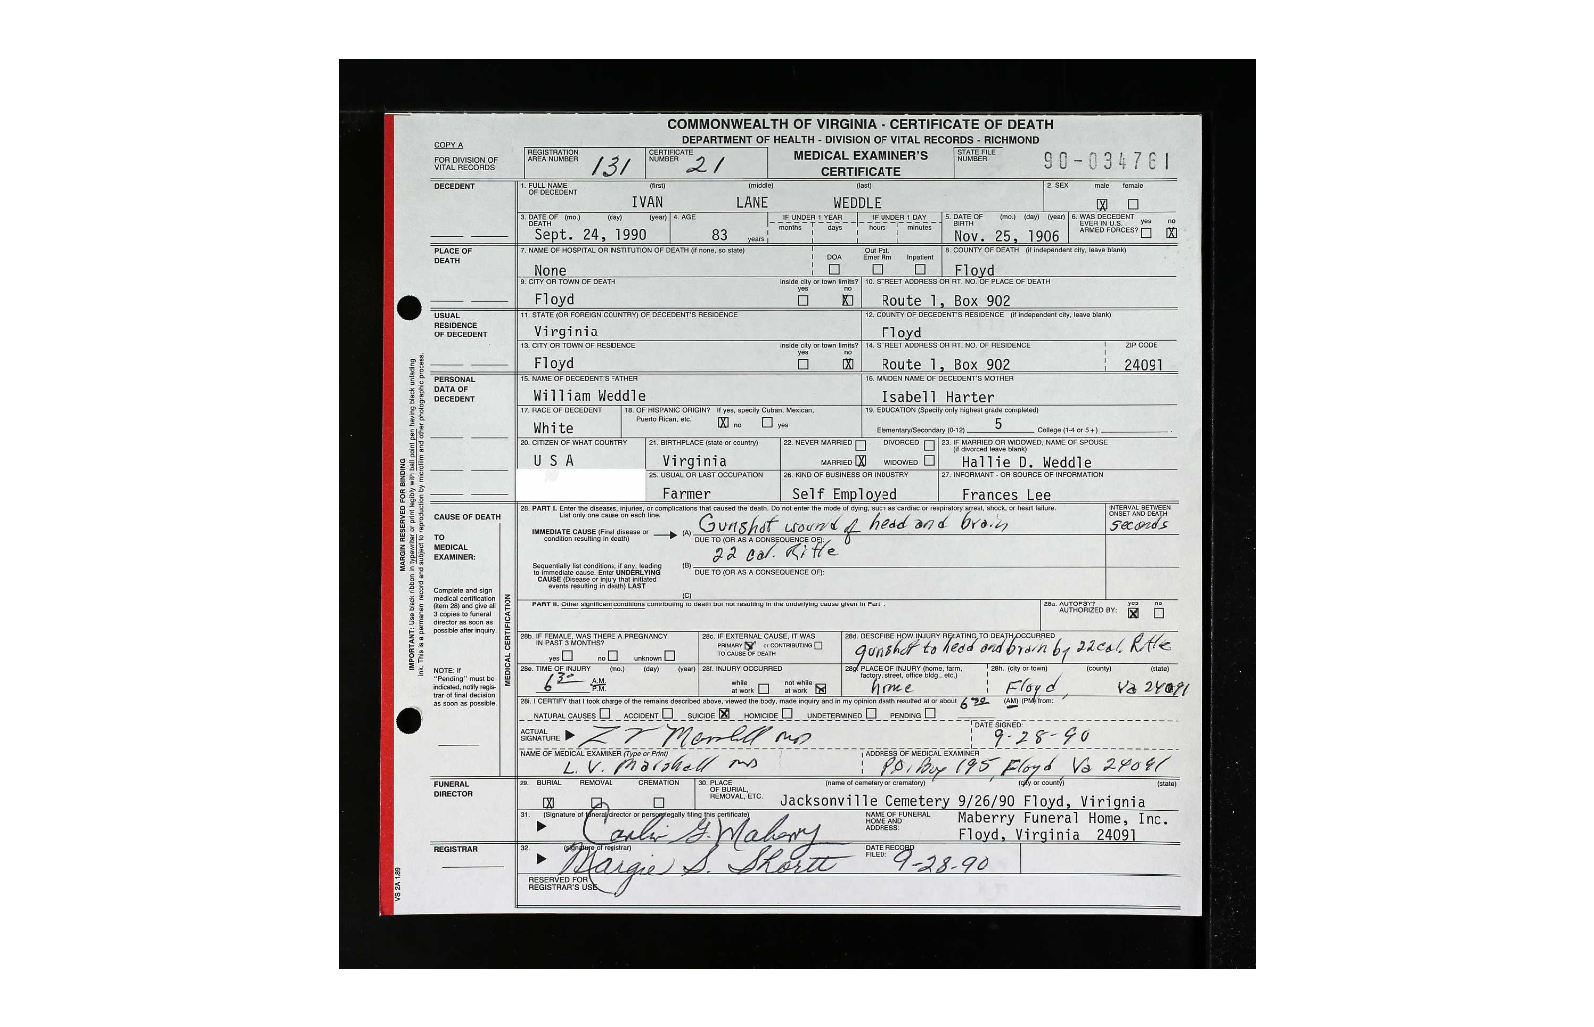 COMMONWEALTH OF VIRGINIA - CERTIFICATE OF DEATH
DEPARTMENT OF HEALTH - DIVISION OF VITAL RECORDS - RICHMOND
COPY A
FOR DIVISION OF VITAL RECORDS
REGISTRATION AREA NUMBER 131
CERTIFICATE NUMBER 21
MEDICAL EXAMINER'S CERTIFICATE
STATE FILE NUMBER 90-034761
DECEDENT
1. FULL NAME OF DECEDENT (first) (middle) (last)
IVAN LANE WEDDLE
2. SEX male female
X
3. DATE OF DEATH (mo.) (day) (year)
Sept. 24, 1990
4. AGE
83 years
IF UNDER 1 YEAR months days
IF UNDER 1 DAY hours minutes
5. DATE OF BIRTH (mo.) (day) (year)
Nov. 25, 1906
6. WAS DECEDENT EVER IN U.S. ARMED FORCES? yes no
X
PLACE OF DEATH
7. NAME OF HOSPITAL OR INSTITUTION OF DEATH (if none, so state)
None
DOA Out Pat. Emer Rm Inpatient
8. COUNTY OF DEATH (if independent city, leave blank)
Floyd
9. CITY OR TOWN OF DEATH
Floyd
inside city or town limits? yes no
X
10. STREET ADDRESS OR RT. NO. OF PLACE OF DEATH
Route 1, Box 902
USUAL RESIDENCE OF DECEDENT
11. STATE (OR FOREIGN COUNTRY) OF DECEDENT'S RESIDENCE
Virginia
12. COUNTY OF DECEDENT'S RESIDENCE (if independent city, leave blank)
Floyd
13. CITY OR TOWN OF RESIDENCE
Floyd
inside city or town limits? yes no
X
14. STREET ADDRESS OR RT. NO. OF RESIDENCE
Route 1, Box 902
ZIP CODE
24091
PERSONAL DATA OF DECEDENT
15. NAME OF DECEDENT'S FATHER
William Weddle
16. MAIDEN NAME OF DECEDENT'S MOTHER
Isabell Harter
17. RACE OF DECEDENT
White
18. OF HISPANIC ORIGIN? If yes, specify Cuban, Mexican, Puerto Rican, etc.
X no yes
19. EDUCATION (Specify only highest grade completed)
Elementary/Secondary (0-12) 5 College (1-4 or 5+)
20. CITIZEN OF WHAT COUNTRY
U S A
21. BIRTHPLACE (state or country)
Virginia
22. NEVER MARRIED DIVORCED
MARRIED X WIDOWED
23. IF MARRIED OR WIDOWED, NAME OF SPOUSE (if divorced leave blank)
Hallie D. Weddle
25. USUAL OR LAST OCCUPATION
Farmer
26. KIND OF BUSINESS OR INDUSTRY
Self Employed
27. INFORMANT - OR SOURCE OF INFORMATION
Frances Lee
CAUSE OF DEATH
28. PART I. Enter the diseases, injuries, or complications that caused the death. Do not enter the mode of dying, such as cardiac or respiratory arrest, shock, or heart failure.
List only one cause on each line.
INTERVAL BETWEEN ONSET AND DEATH
IMMEDIATE CAUSE (Final disease or condition resulting in death)
(A) Gunshot wound of head and brain
seconds
DUE TO (OR AS A CONSEQUENCE OF):
(B) 22 cal. Rifle
Sequentially list conditions, if any, leading to immediate cause. Enter UNDERLYING CAUSE (Disease or injury that initiated events resulting in death) LAST
DUE TO (OR AS A CONSEQUENCE OF):
(C)
TO MEDICAL EXAMINER:
Complete and sign medical certification (item 28) and give all 3 copies to funeral director as soon as possible after inquiry.
NOTE: If "Pending" must be indicated, notify registrar of final decision as soon as possible.
MEDICAL CERTIFICATION
PART II. Other significant conditions contributing to death but not resulting in the underlying cause given in Part I.
28a. AUTOPSY? yes no
AUTHORIZED BY: X
28b. IF FEMALE, WAS THERE A PREGNANCY IN PAST 3 MONTHS?
yes no unknown
28c. IF EXTERNAL CAUSE, IT WAS
PRIMARY X or CONTRIBUTING
TO CAUSE OF DEATH
28d. DESCRIBE HOW INJURY RELATING TO DEATH OCCURRED
gunshot to head and brain by 22 cal. Rifle
28e. TIME OF INJURY (mo.) (day) (year)
6 30 A.M. P.M.
28f. INJURY OCCURRED
while at work not while at work X
28g. PLACE OF INJURY (home, farm, factory, street, office bldg., etc.)
home
28h. (city or town) (county) (state)
Floyd, Va 24091
28i. I CERTIFY that I took charge of the remains described above, viewed the body, made inquiry and in my opinion death resulted at or about 6 30 (AM) (PM) from:
NATURAL CAUSES ACCIDENT SUICIDE X HOMICIDE UNDETERMINED PENDING
ACTUAL SIGNATURE
DATE SIGNED:
9-28-90
NAME OF MEDICAL EXAMINER (Type or Print)
L. V. Marshall MD
ADDRESS OF MEDICAL EXAMINER
P.O. Box 195, Floyd Va 24091
FUNERAL DIRECTOR
29. BURIAL REMOVAL CREMATION
X
30. PLACE OF BURIAL, REMOVAL, ETC. (name of cemetery or crematory) (city or county) (state)
Jacksonville Cemetery 9/26/90 Floyd, Virignia
31. (Signature of funeral director or person legally filing this certificate)
Carlin G. Maberry
NAME OF FUNERAL HOME AND ADDRESS:
Maberry Funeral Home, Inc.
Floyd, Virginia 24091
REGISTRAR
32. (signature of registrar)
Margie S. Shortt
DATE RECORD FILED:
9-28-90
RESERVED FOR REGISTRAR'S USE
VS 2A 1/89
MARGIN RESERVED FOR BINDING
IMPORTANT: Use black ribbon in typewriter or print legibly with ball point pen having black unfading
ink. This is a permanent record and subject to reproduction by microfilm and other photographic process.